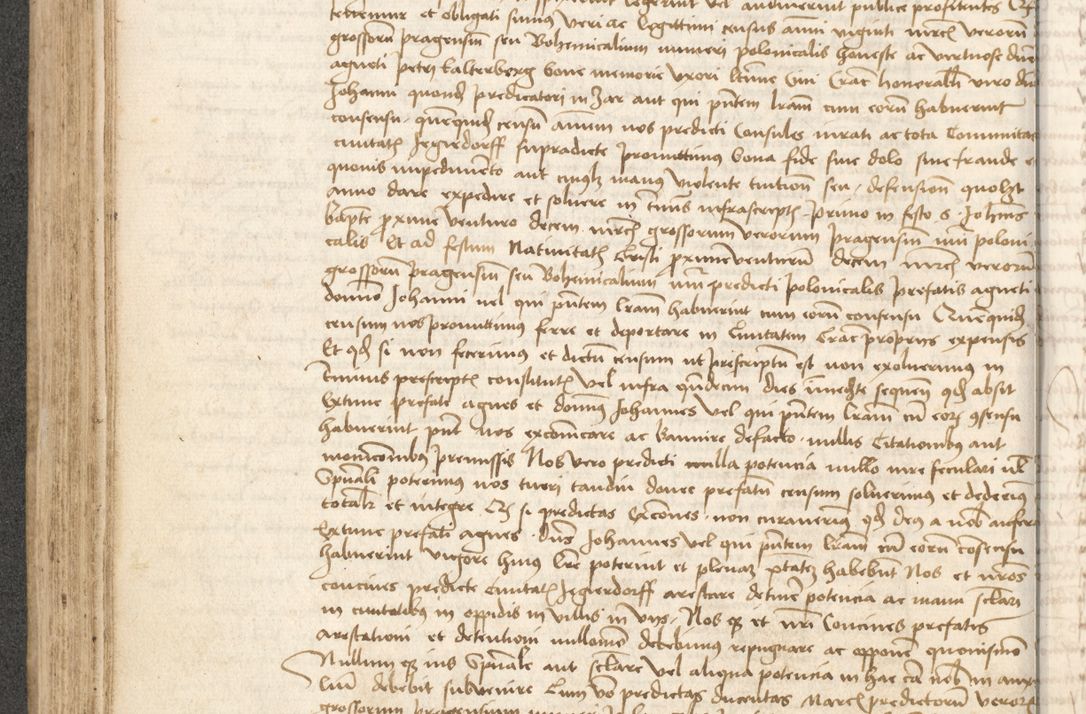 tenemur et obligati sumus veri ac legittimi census annui viginti mrch verorum
grossorum pragensium seu Bohemicalium numeri polonicalis honeste ac virtuose dne
agneti petri falterberg bone memorie uxori ltime Civi Crac honorabli viro dno
Johanni quondam predicatori in Zar aut qui pntem lram cum eorum habuerint
consensu quemquidem censum annuum nos predicti Consules iurati ac tota Communitas
civitatis Jegerdorff supradicte promittimus bona fide sine dolo sine fraude et
quovis impedimento aut cuiuslibet manus violente tuitione seu defensione quolibet
anno dare expedire et solvere in terminis infrascriptis primo in festo s Johannis
bapte proxime venturo decem mrch grossorum verorum pragensium nui poloni
calis Et ad festum Nativitatis Cristi proxime venturum decem mrch verorum
grossorum pragensium seu Bohemicalium nui predicti polonicalis prefatis agneti
domino Johanni vel qui pntem lram habuerint cum eorum consensu Quemquidem
censum nos promittimus ferre et deportare in Civitatem Crac propriis expensis
Et quod si non fecerimus et dictum censum ut prescriptum est non exolverimus in
terminis prescriptis constitutis vel infra quindecim dies immediate sequentes quod absit
Extunc prefati agnes et dominus Johannes vel qui pntem lram cum eorum consensu
habuerint pnt nos excomicare ac bannire defacto nullis Citationibus aut
monicionibus premissis Nos vero predicti nulla potencia nullo iure seculari vel
spirituali poterimus nos tueri tamdiu donec prefatum censum solverimus et dederimus
totaliter et integre Et si predictas excomes non curaverimus quod deus a nobis auferat
Extunc prefati agnes dns Johannes vel qui pntem lram cum eorum consensu
habuerint vigore huius lre poterint et plenam ptatem habebunt Nos et nros
concives predicte civitatis Jegierdorff arestare detinere potencia ac manu seculari
in civitatibus in oppidis in villis in viis Nos et nri Concives prefatis
arestationi et detentioni nullomodo debebimus repugnare ac opponere quovismodo
Nullum ius spirituale aut seculare vel aliqua potencia in hac causa nobis in auxi
lium debebit subvenire Cum vero predictas ducentas Marcas predictorum verorum